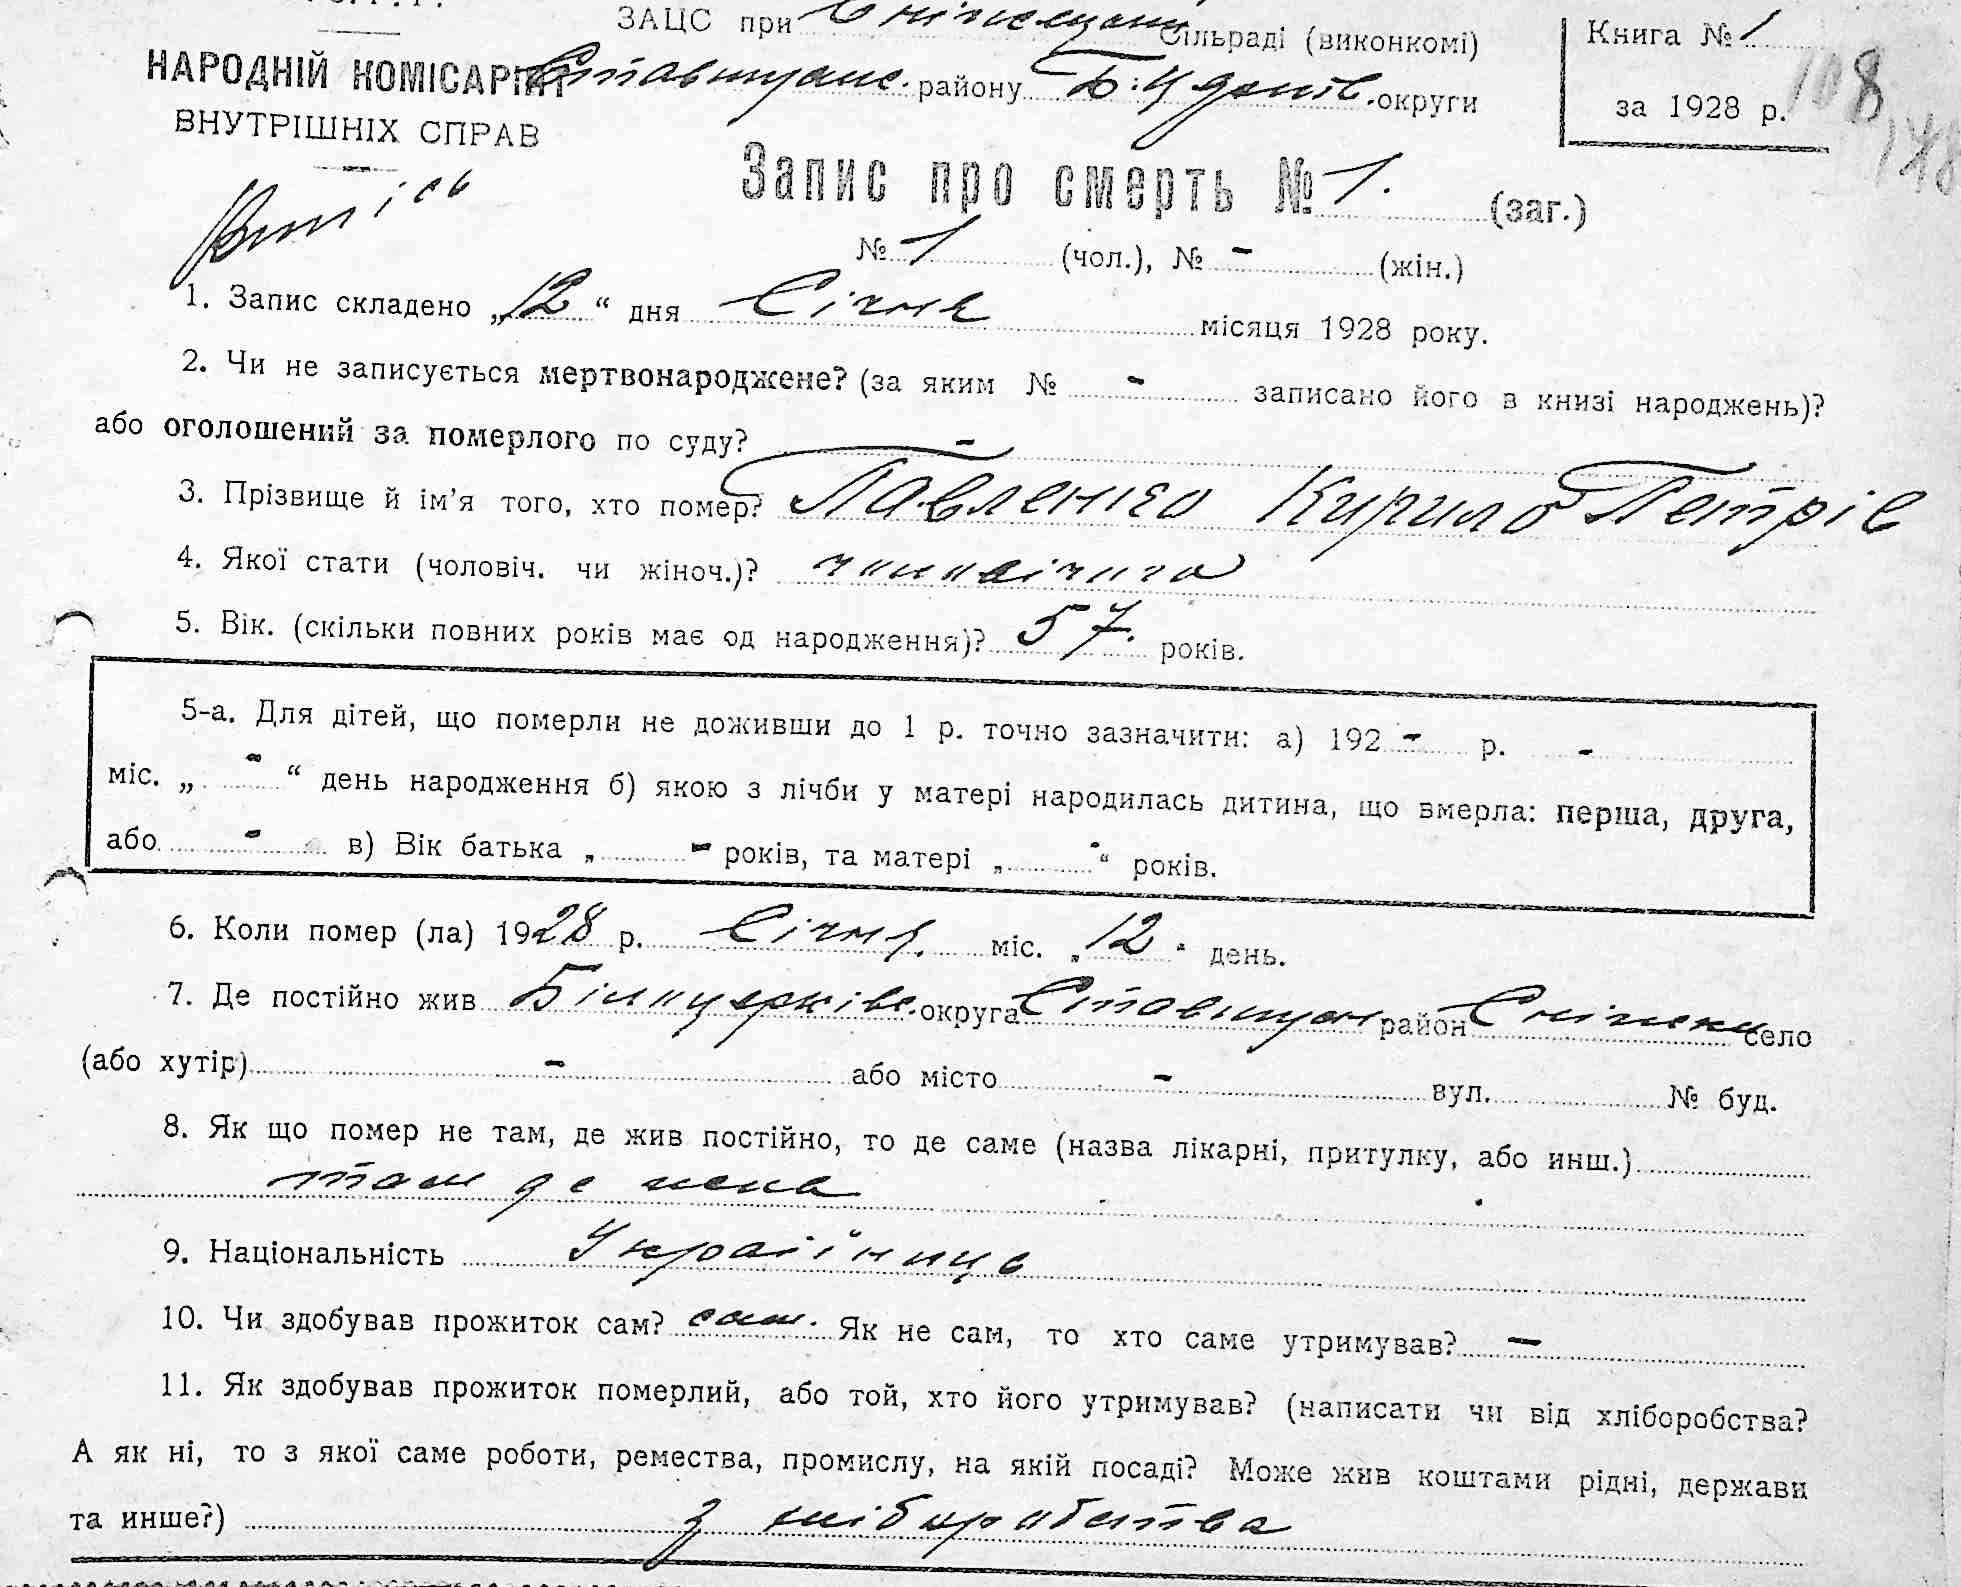 ЗАЦС при Сніжещан Сільраді (виконкомі) Книга № 1
НАРОДНІЙ КОМІСАРІЯТ Ставищанс. району Б:Церків. округи за 1928 р. 108
ВНУТРІШНІХ СПРАВ
Запис про смерть № 1. (заг.)
№ 1 (чол.), № - (жін.)
1. Запис складено „12“ дня Січня місяця 1928 року.
2. Чи не записується мертвонароджене? (за яким № - записано його в книзі народжень)?
або оголошений за померлого по суду? -
3. Прізвище й ім’я того, хто помер? Павленко Кирило Петрів
4. Якої стати (чоловіч. чи жіноч.)? чоловічого
5. Вік. (скільки повних років має од народження)? 57. років.
5-а. Для дітей, що померли не доживши до 1 р. точно зазначити: а) 192 - р. -
міс. „ - “ день народження б) якою з лічби у матері народилась дитина, що вмерла: перша, друга,
або - в) Вік батька „ - років, та матері „ - “ років.
6. Коли помер (ла) 1928 р. Січня. міс. „12“ день.
7. Де постійно жив Білоцерківс. округа Ставищан район село
(або хутір) - або місто - вул. № буд.
8. Як що помер не там, де жив постійно, то де саме (назва лікарні, притулку, або инш.)
там де жив
9. Національність Українець
10. Чи здобував прожиток сам? сам. Як не сам, то хто саме утримував? —
11. Як здобував прожиток померлий, або той, хто його утримував? (написати чи від хліборобства?
А як ні, то з якої саме роботи, ремества, промислу, на якій посаді? Може жив коштами рідні, держави
та инше?) з хліборобства